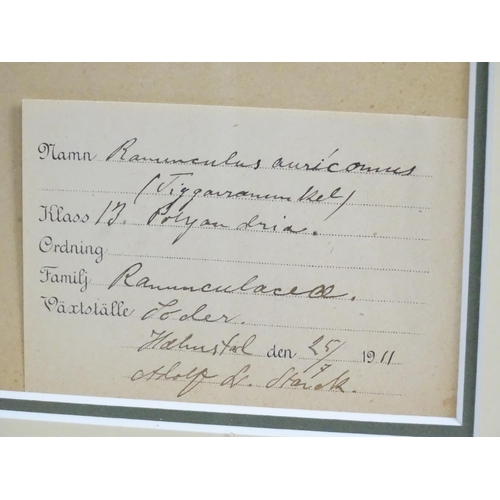 Namn Ranunculus auricomus
(Tiggarranunkel)
Klass 13. Polyandria.
Ordning
Familj Ranunculaceæ.
Växtställe Söder.
den 25/7 1911
Adolf L.